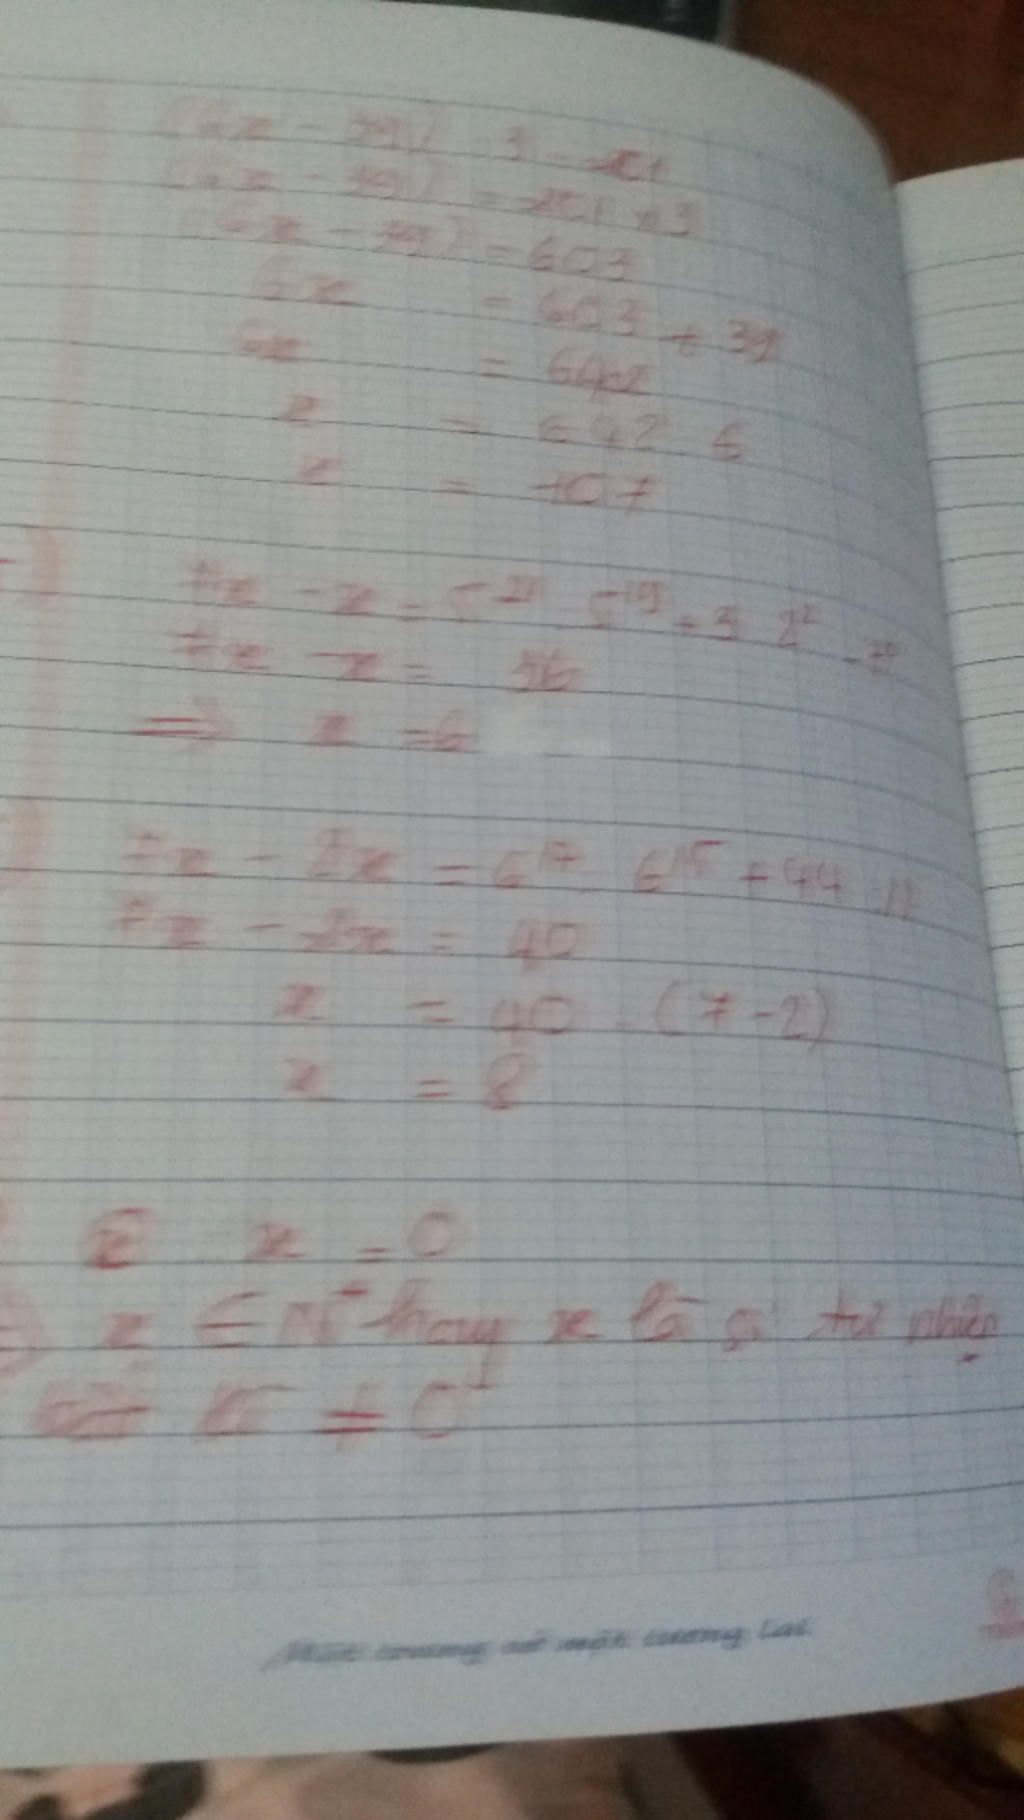 (6x - 39) : 3 = 201
(6x - 39) = 201 × 3
(6x - 39) = 603
6x = 603 + 39
6x = 642
x = 642 : 6
x = 107
7x - x = 5²¹ : 5¹⁹ + 3 . 2² - 7⁰
7x - x = 36
⇒ x = 6
7x - 2x = 6¹⁷ : 6¹⁵ + 44 : 11
7x - 2x = 40
x = 40 : (7 - 2)
x = 8
x = 0
x ∈ N hay x là số tự nhiên
≠ 0
Một trang vở một tương lai